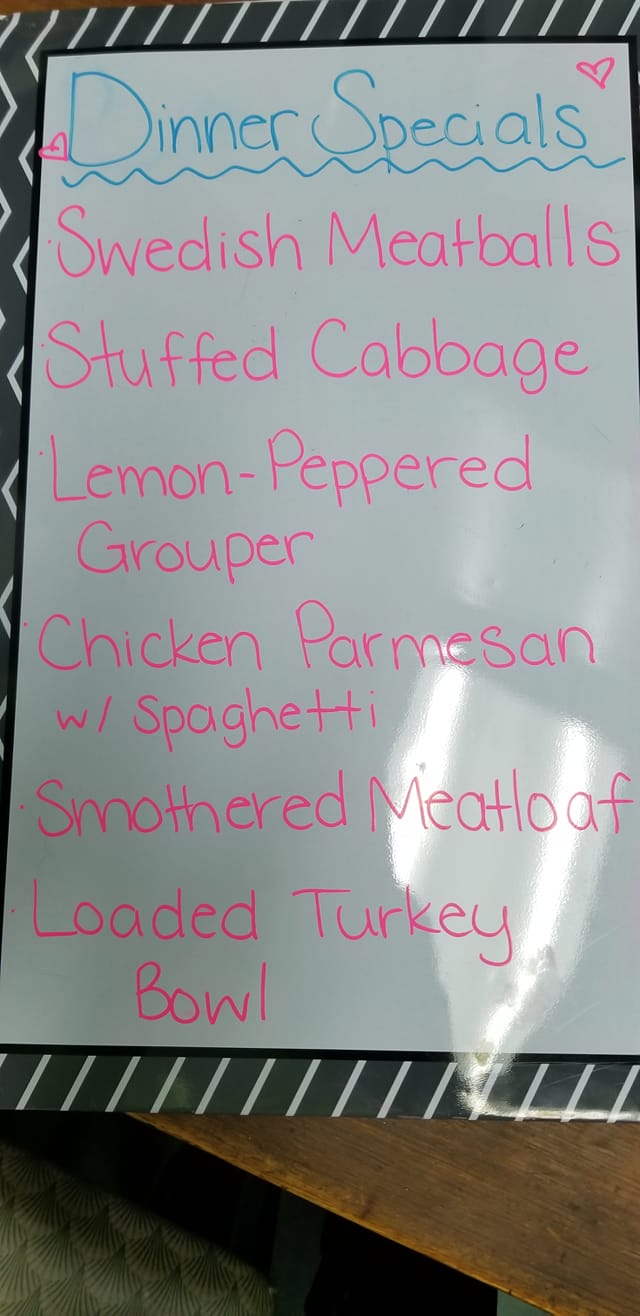 Dinner Specials
· Swedish Meatballs
· Stuffed Cabbage
· Lemon-Peppered
Grouper
· Chicken Parmesan
w/ Spaghetti
· Smothered Meatloaf
· Loaded Turkey
Bowl